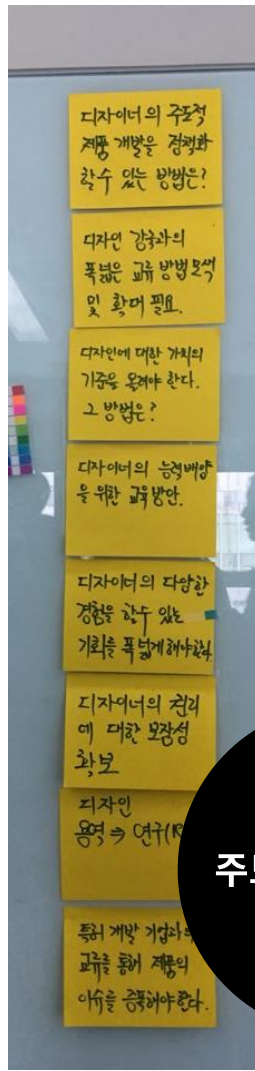 디자이너의 주도적
제품 개발을 정책화
할수 있는 방법은?
디자인 강국과의
폭넓은 교류 방법 모색
및 확대 필요.
디자인에 대한 가치의
기준을 올려야 한다.
그 방법은?
디자이너의 능력배양
을 위한 교육방안.
디자이너의 다양한
경험을 할수 있는
기회를 폭넓게해야한다
디자이너의 권리
에 대한 보장성
확보
디자인
용역 ⇒ 연구(R
특허 개발 기업과의
교류를 통해 제품의
이슈를 증폭해야한다.